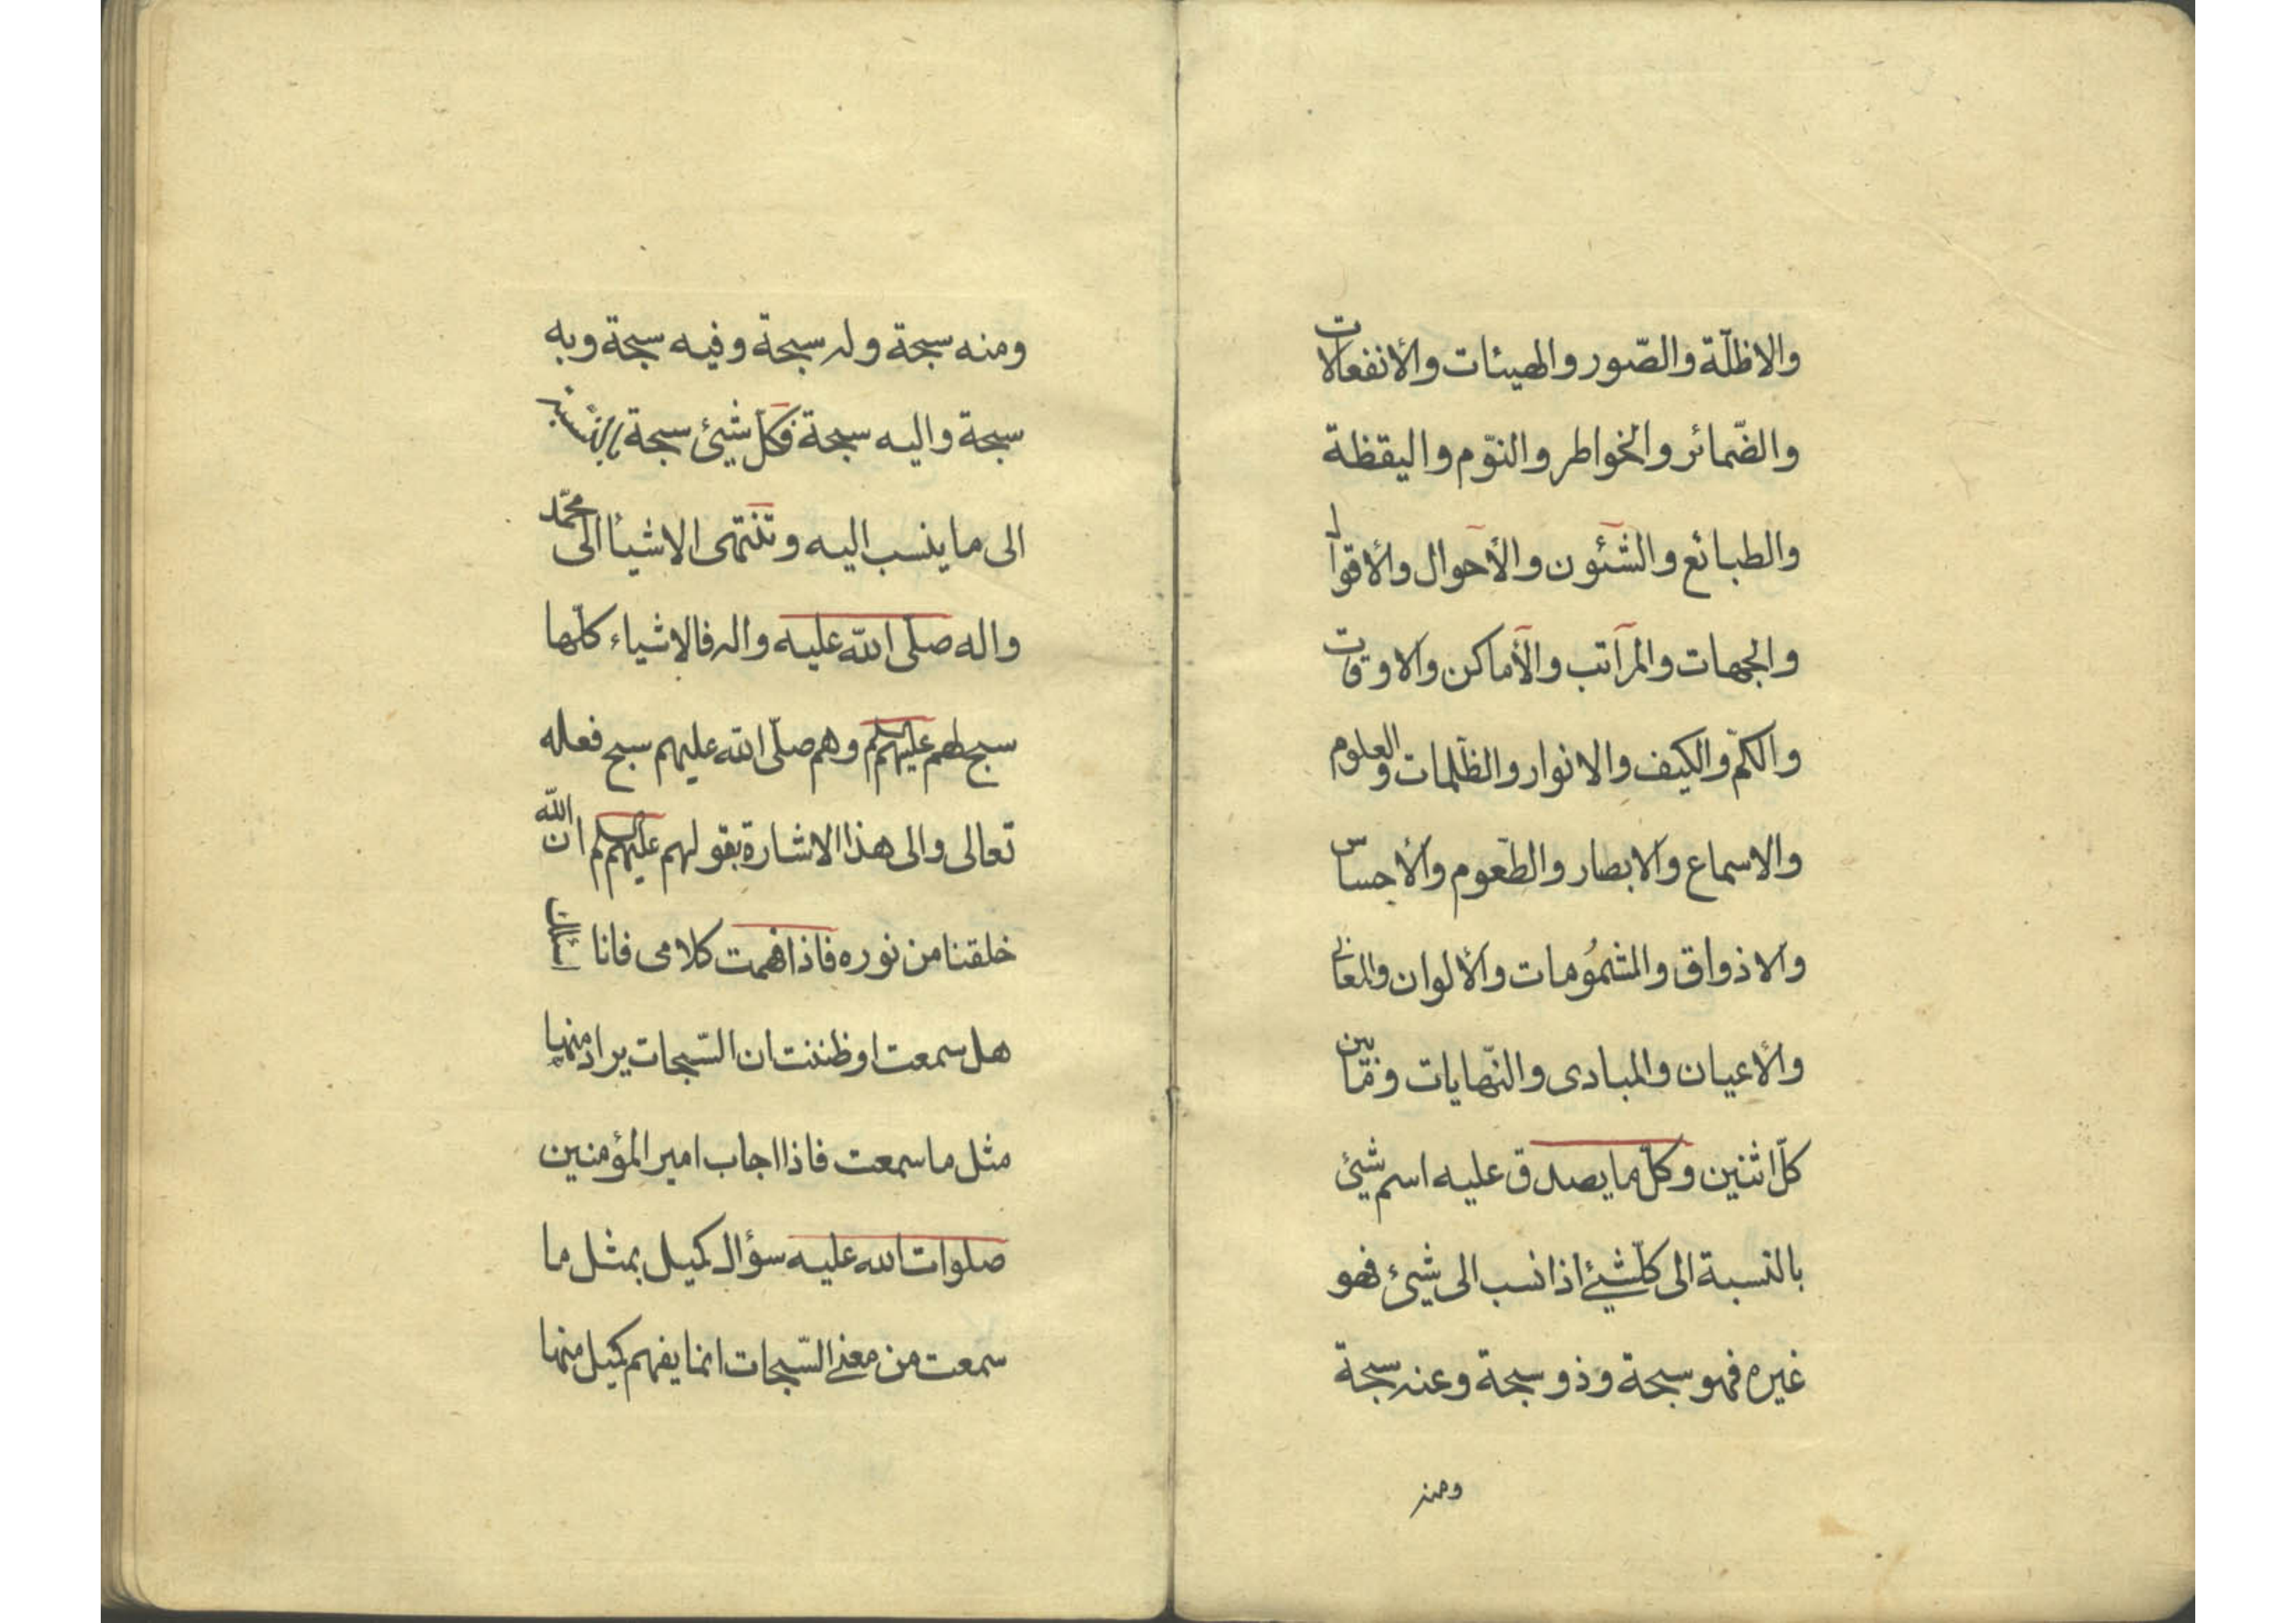 والاظلّة والصّور والهيئات والانفعالات
والضّمائر والخواطر والنوّم واليقظة
والطبائع والشئون والأحوال والاقوال
والجهات والمرآتب والأماكن والاوقات
والكمّ والكيف والانوار والظّلمات والعلوم
والاسماع والابصار والطّعوم والأجساس
والاذواق والمشمُومات والألوان والمعانى
والأعيان والمبادى والنّهايات وممّا بين
كلّ اثنين وكلّما يصدق عليه اسم شيئ
بالنّسبة الى كلّشيئ اذا نسب الى شيئ فهو
غيره فهو سبحة وذو سبحة وعنه سبحة
ومنه
ومنه سبحة وله سبحة وفيه سبحة وبه
سبحة واليه سبحة فكلّ شيئ سبحة بالنسبة
الى ما ينسب اليه وتنتهى الاشيأ الى محمّد
واله صلّى الله عليه واله فالاشياء كلّها
سبح لهم عليهم السلم وهم صلّى الله عليهم سبح فعله
تعالى والى هذا الاشارة بقولهم عليهم السلم ان الله
خلقنا من نوره فاذا فهمت كلامى فانا اسئلك
هل سمعت او ظننت ان السّبحات يراد منها
مثل ما سمعت فاذا اجاب امير المؤمنين
صلوات الله عليه سؤال كميل بمثل ما
سمعت من معنى السّبحات انما يفهم كميل منها